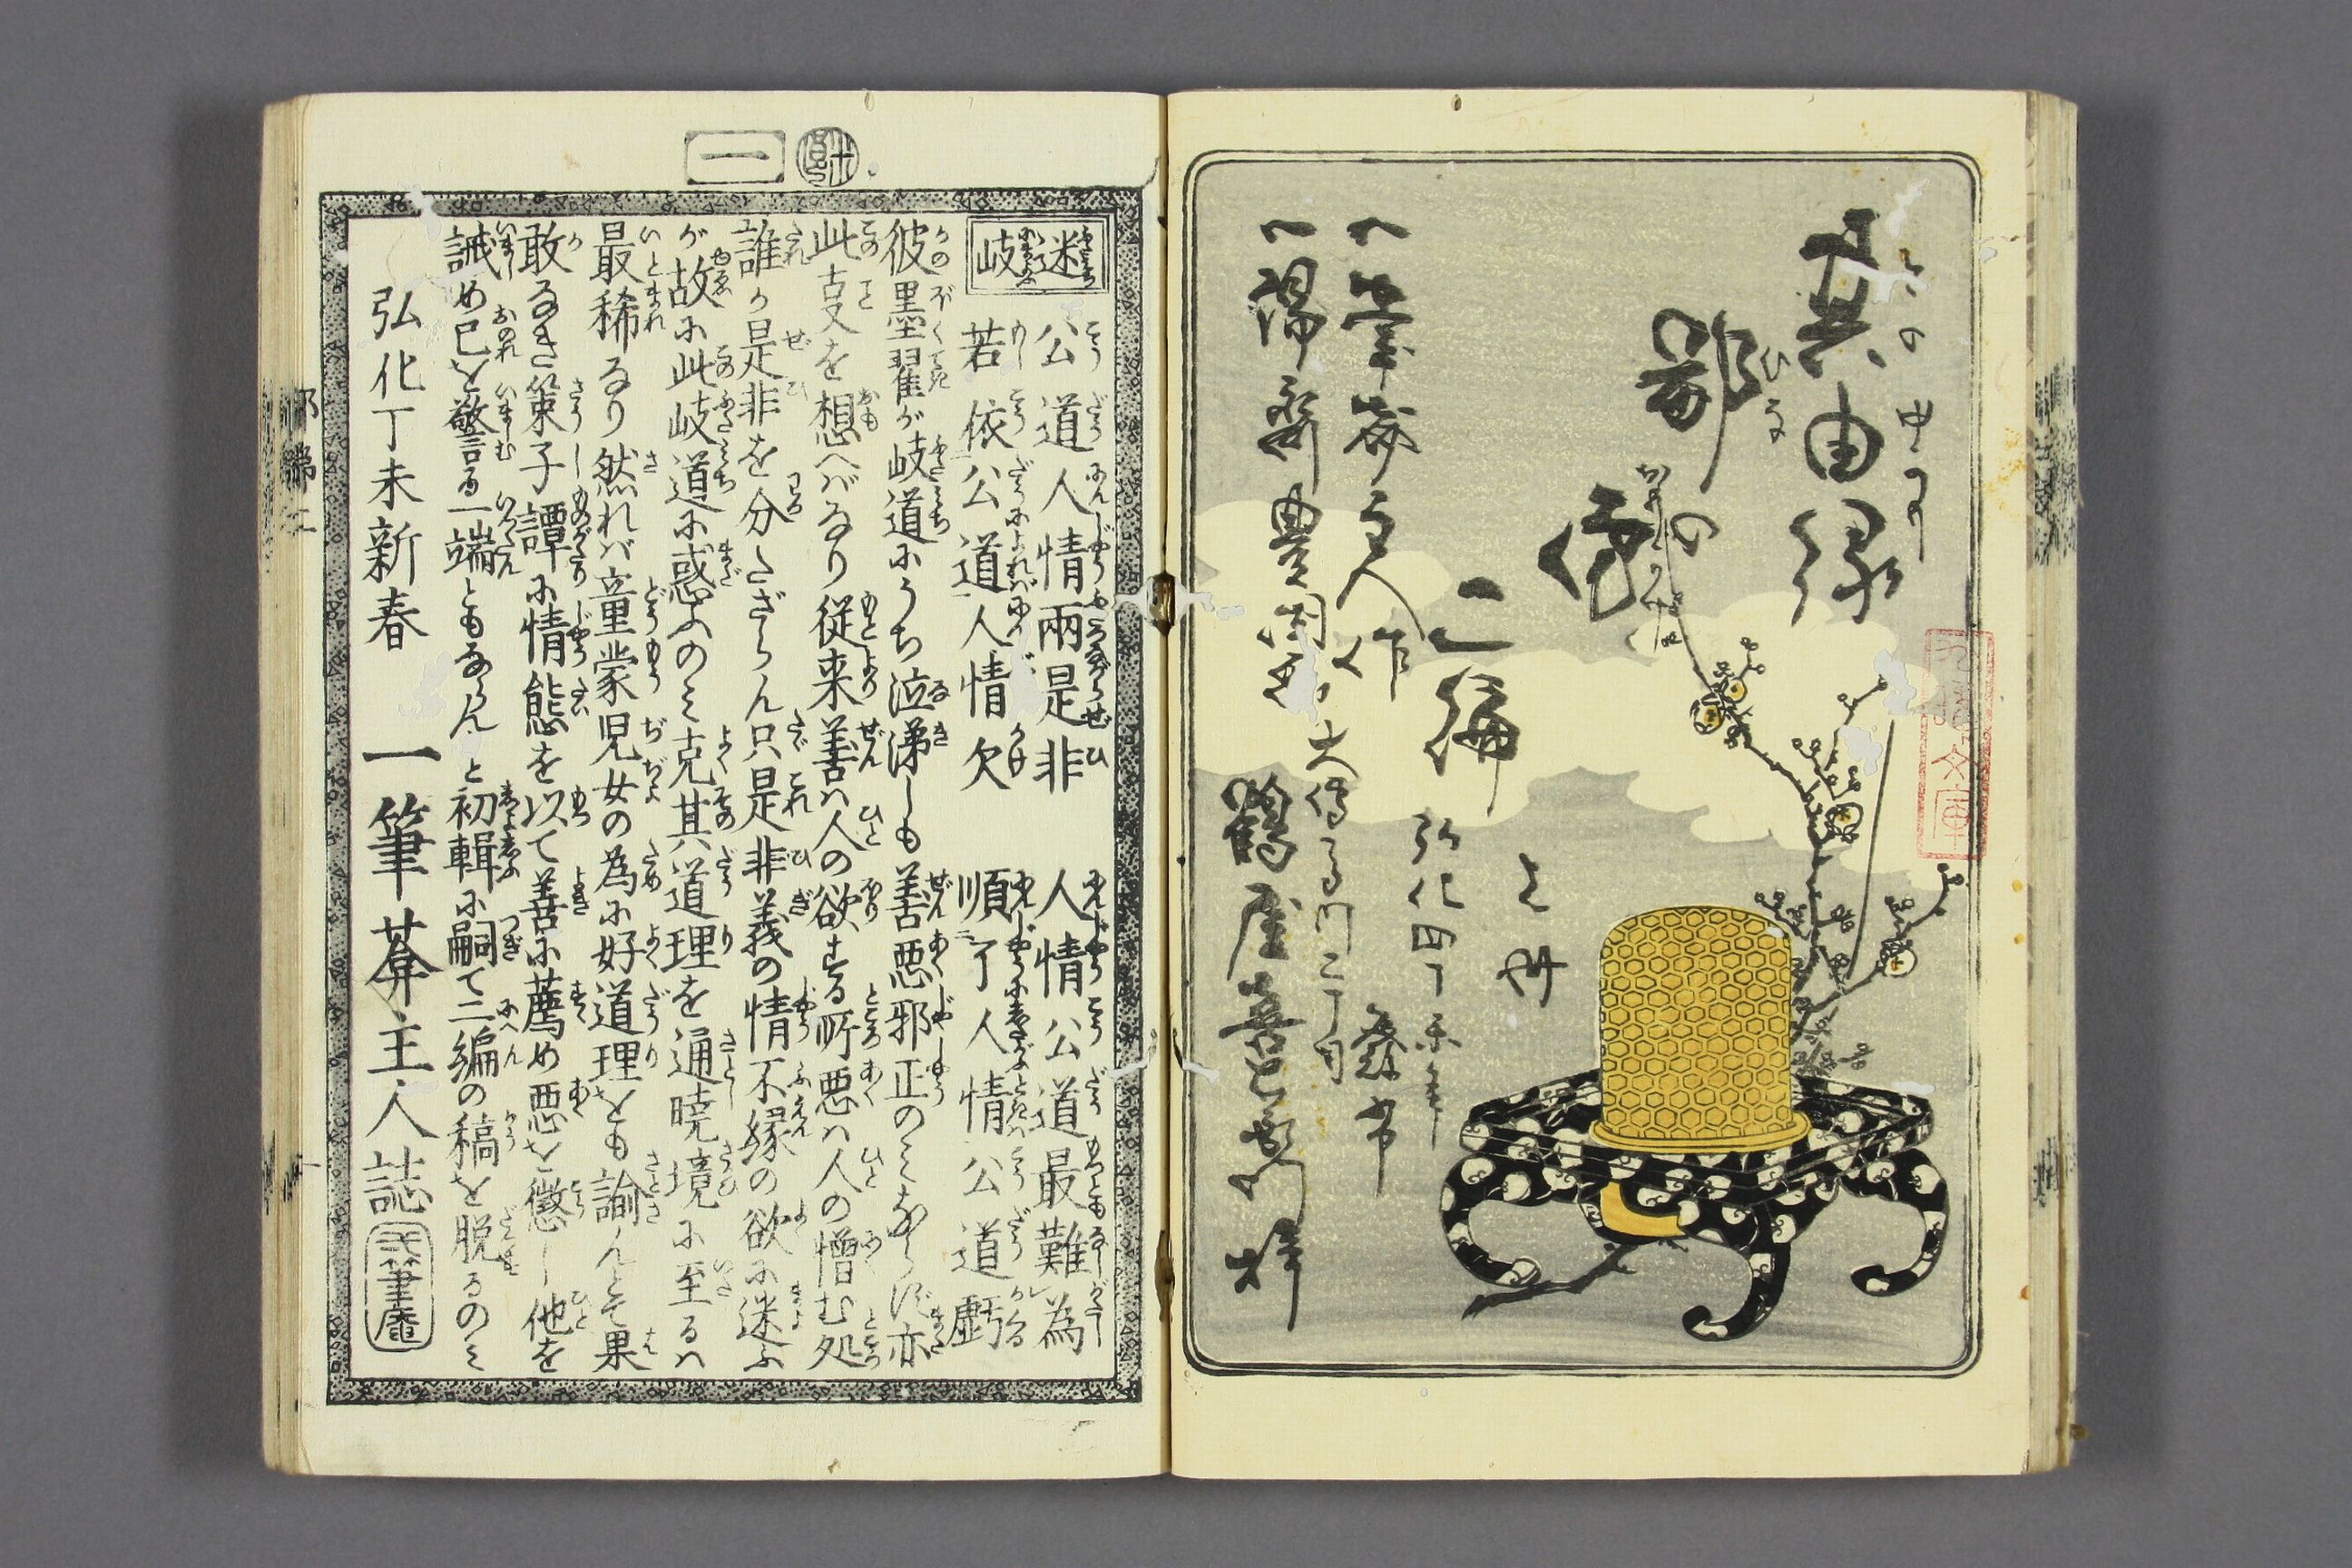 其由縁
鄙の俤
ひな
二編
上冊
弘化四丁未年
一筆葊主人作
一陽齋豊国画
大傳馬町二丁目
鶴屋喜右衛門梓
一
迷岐
公道人情兩是非 人情公道最難為
若依公道人情欠 順了人情公道虧
彼墨翟が岐道にうち泣涕しも善悪邪正のミならず亦
此叓を想へばなり従来善ハ人の欲する所悪ハ人の憎む処
誰か是非を分たざらん只是非義の情不縁の欲に迷ふ
が故に此岐道に惑ふのミ克其道理を通暁境に至るハ
最稀なり然れバ童蒙児女の為に好道理をも諭んとて果
敢なき策子譚に情態を以て善に薦め悪を懲し他を
誡め己を警る一端ともならんと初輯に嗣て二編の稿を脱るのミ
弘化丁未新春 一筆葊主人誌
一筆庵